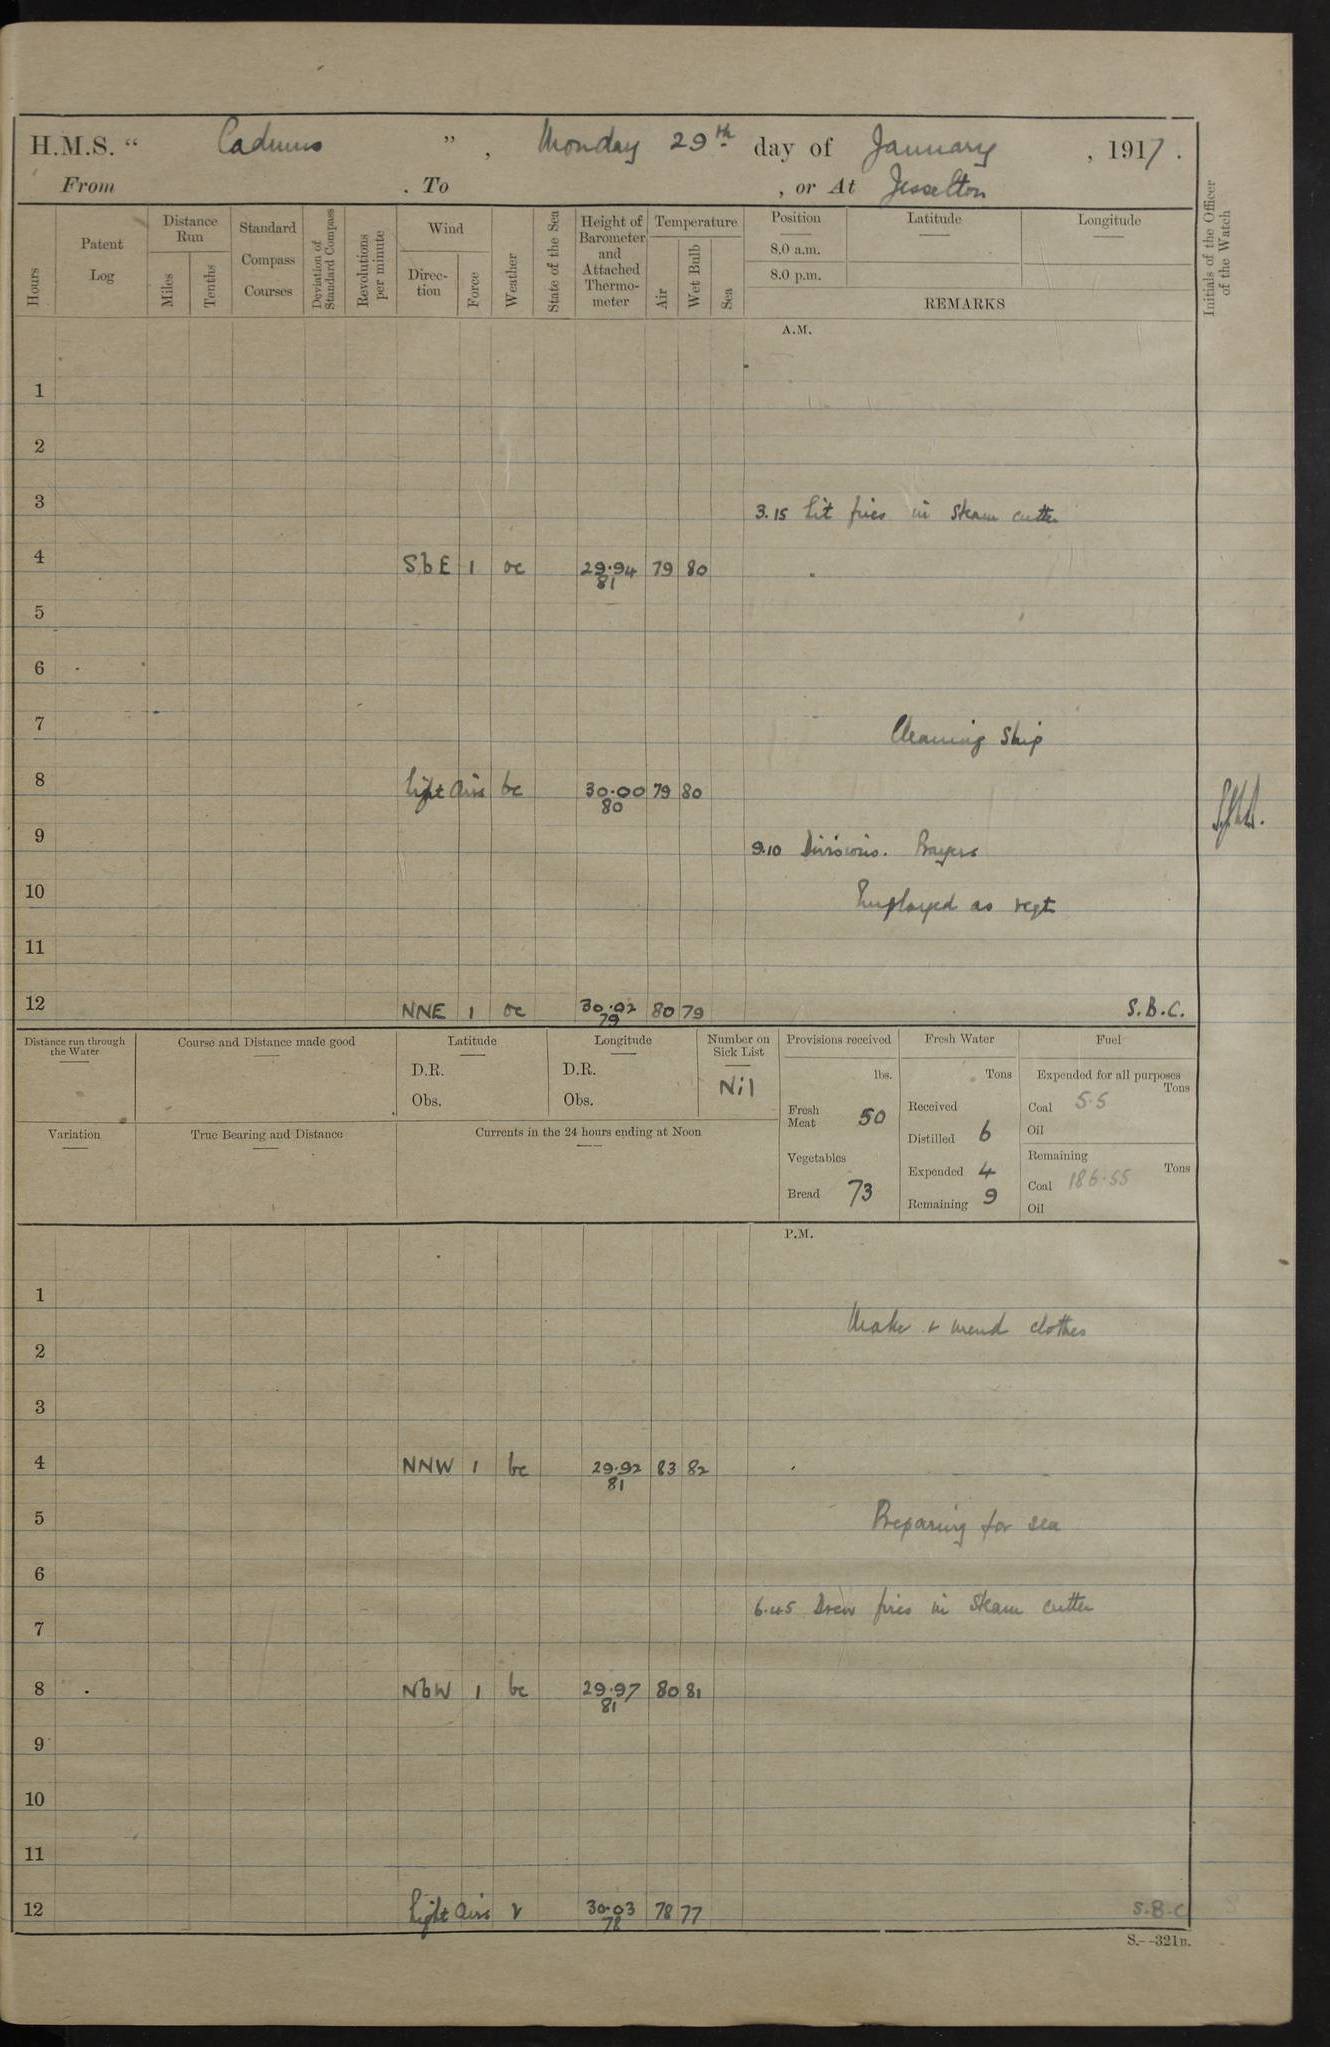 H.M.S. “ Cadmus ” , Monday 29th day of January , 1917 .
From . To , or At Jesselton
Hours
Patent Log
Distance Run
Miles
Tenths
Standard Compass Courses
Deviation of Standard Compass
Revolutions per minute
Wind
Direc-tion
Force
Weather
State of the Sea
Height of Barometer and Attached Thermo-meter
Temperature
Air
Wet Bulb
Sea
Position Latitude Longitude
8.0 a.m.
8.0 p.m.
REMARKS
Initials of the Officer of the Watch
A.M.
1
2
3
3.15 Lit fires in steam cutter
4 SbE 1 oc 29.94 79 80
81
5
6
7
Cleaning Ship
8 Light airs bc 30.00 79 80
80
9
9.10 Divisions. Prayers
10
Employed as reqt
11
12 NNE 1 oc 30.02 80 79 S.B.C.
79
Distance run through the Water
Course and Distance made good
Latitude
D.R.
Obs.
Longitude
D.R.
Obs.
Number on Sick List
Nil
Provisions received
lbs.
Fresh Meat 50
Vegetables
Bread 73
Fresh Water
Tons
Received
Distilled 6
Expended 4
Remaining 9
Fuel
Expended for all purposes
Tons
Coal 5.5
Oil
Remaining
Tons
Coal 186.55
Oil
Variation
True Bearing and Distance
Currents in the 24 hours ending at Noon
P.M.
1
Make & mend clothes
2
3
4 NNW 1 bc 29.92 83 82
81
5
Preparing for sea
6
6.45 Drew fires in steam cutter
7
8 NbW 1 bc 29.97 80 81
81
9
10
11
12 Light airs r 30.03 78 77 S.B.C
78
S.--321B.